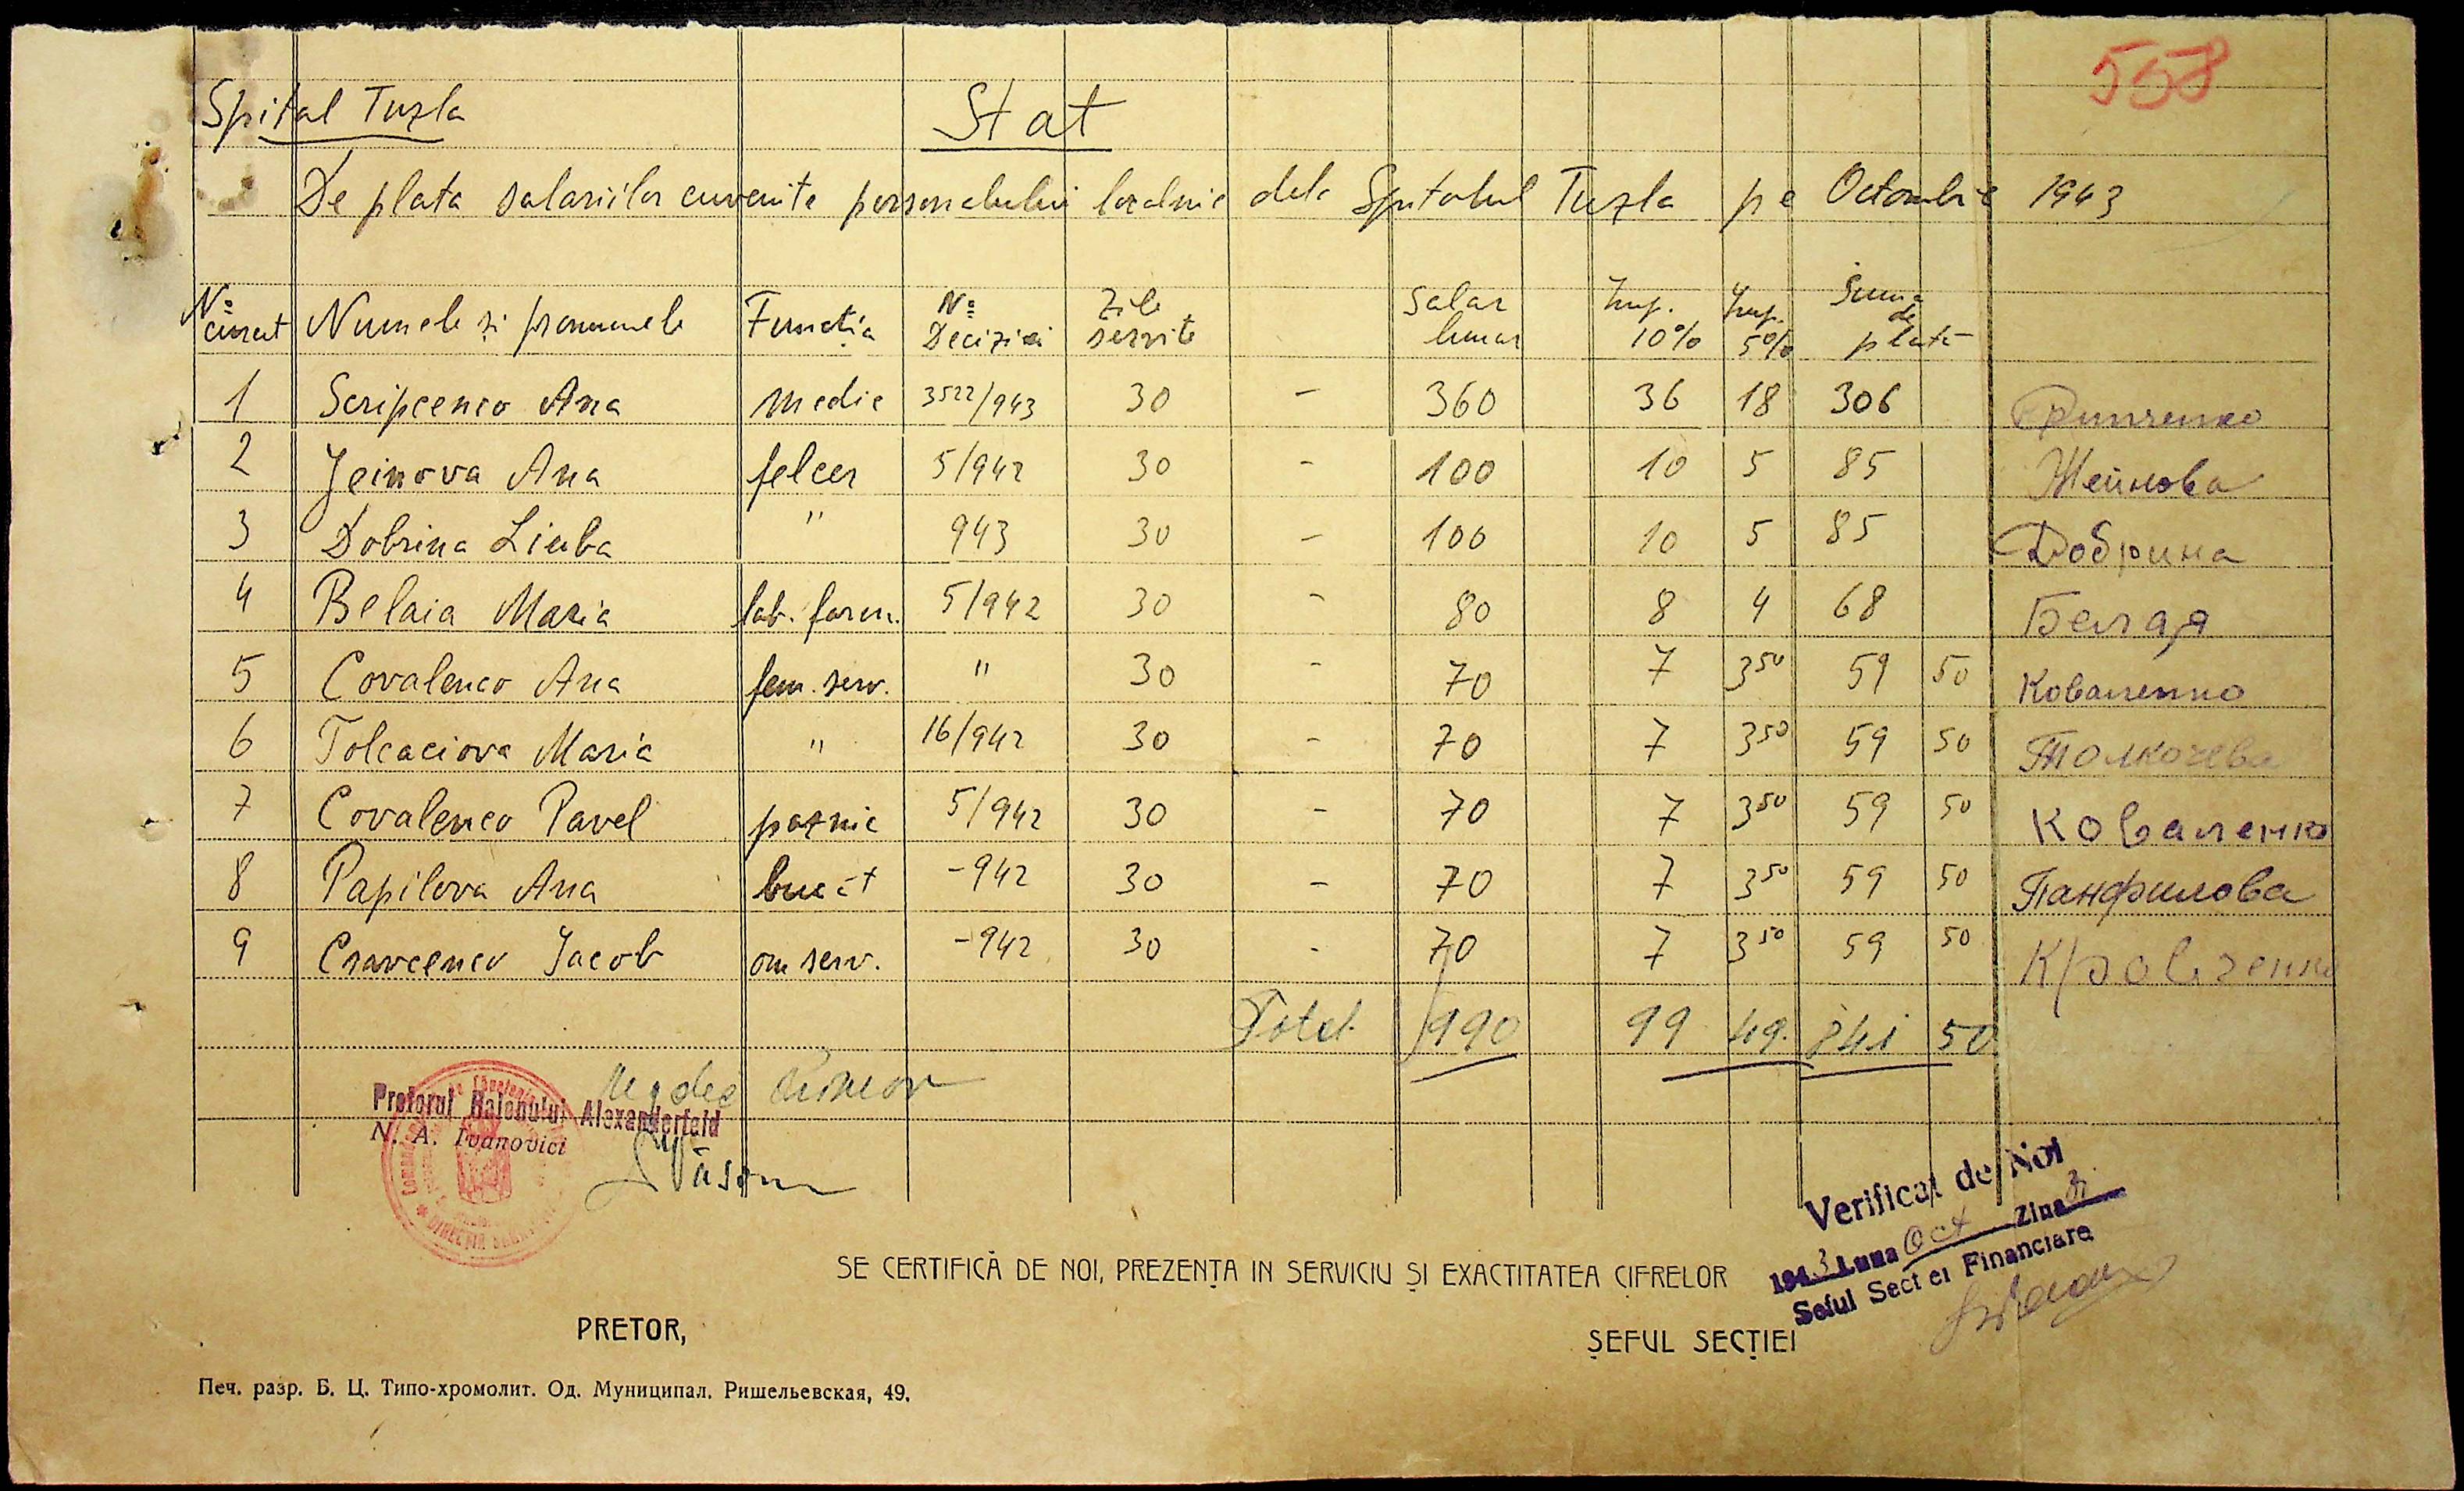 558
Spital Tuzla
Stat
De plata salariilor cuvenite personalului localnic dela Spitalul Tuzla pe Octombrie 1943
No curent Numele si pronumele Functia No Deciziei Zile servite Salar lunar Imp. 10% Imp. 5% Suma de plată
1 Scripcenco Ana medic 3522/943 30 - 360 36 18 306
2 Jeinova Ana felcer 5/942 30 - 100 10 5 85 Жейнова
3 Dobrina Liuba " 943 30 - 100 10 5 85 Добрина
4 Belaia Maria lab. farm. 5/942 30 - 80 8 4 68 Белая
5 Covalenco Ana fem. serv. " 30 - 70 7 3 50 59 50 Коваленко
6 Tolcaciova Maria " 16/942 30 - 70 7 3 50 59 50 Толкочева
7 Covalenco Pavel paznic 5/942 30 - 70 7 3 50 59 50 Коваленко
8 Papilova Ana bucăt -942 30 - 70 7 3 50 59 50 Панфилова
9 Cravcenco Jacob om serv. -942 30 - 70 7 3 50 59 50 Кровченко
Total 990 99 49. 841 50
Pretorul Raionului Alexanderfeld
N. A. Ivanovici
Verificat de Noi
1943 Luna Oct Ziua 31
Seful Sectiei Financiare
SE CERTIFICĂ DE NOI, PREZENȚA IN SERVICIU ȘI EXACTITATEA CIFRELOR
PRETOR,
ȘEFUL SECȚIEI
Печ. разр. Б. Ц. Типо-хромолит. Од. Муниципал. Ришельевская, 49.